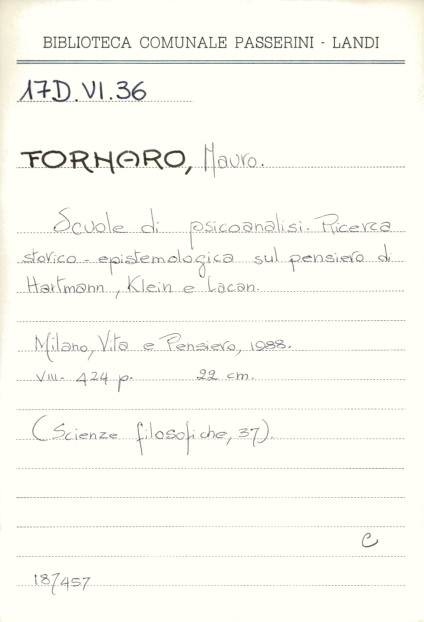 BIBLIOTECA COMUNALE PASSERINI - LANDI
17D.VI.36
FORNARO, Mauro.
Scuole di psicoanalisi. Ricerca
storico-epistemologica sul pensiero di
Hartmann, Klein e Lacan.
Milano, Vita e Pensiero, 1988.
VIII- 424 p. 22 cm.
(Scienze filosofiche, 37).
C
187457